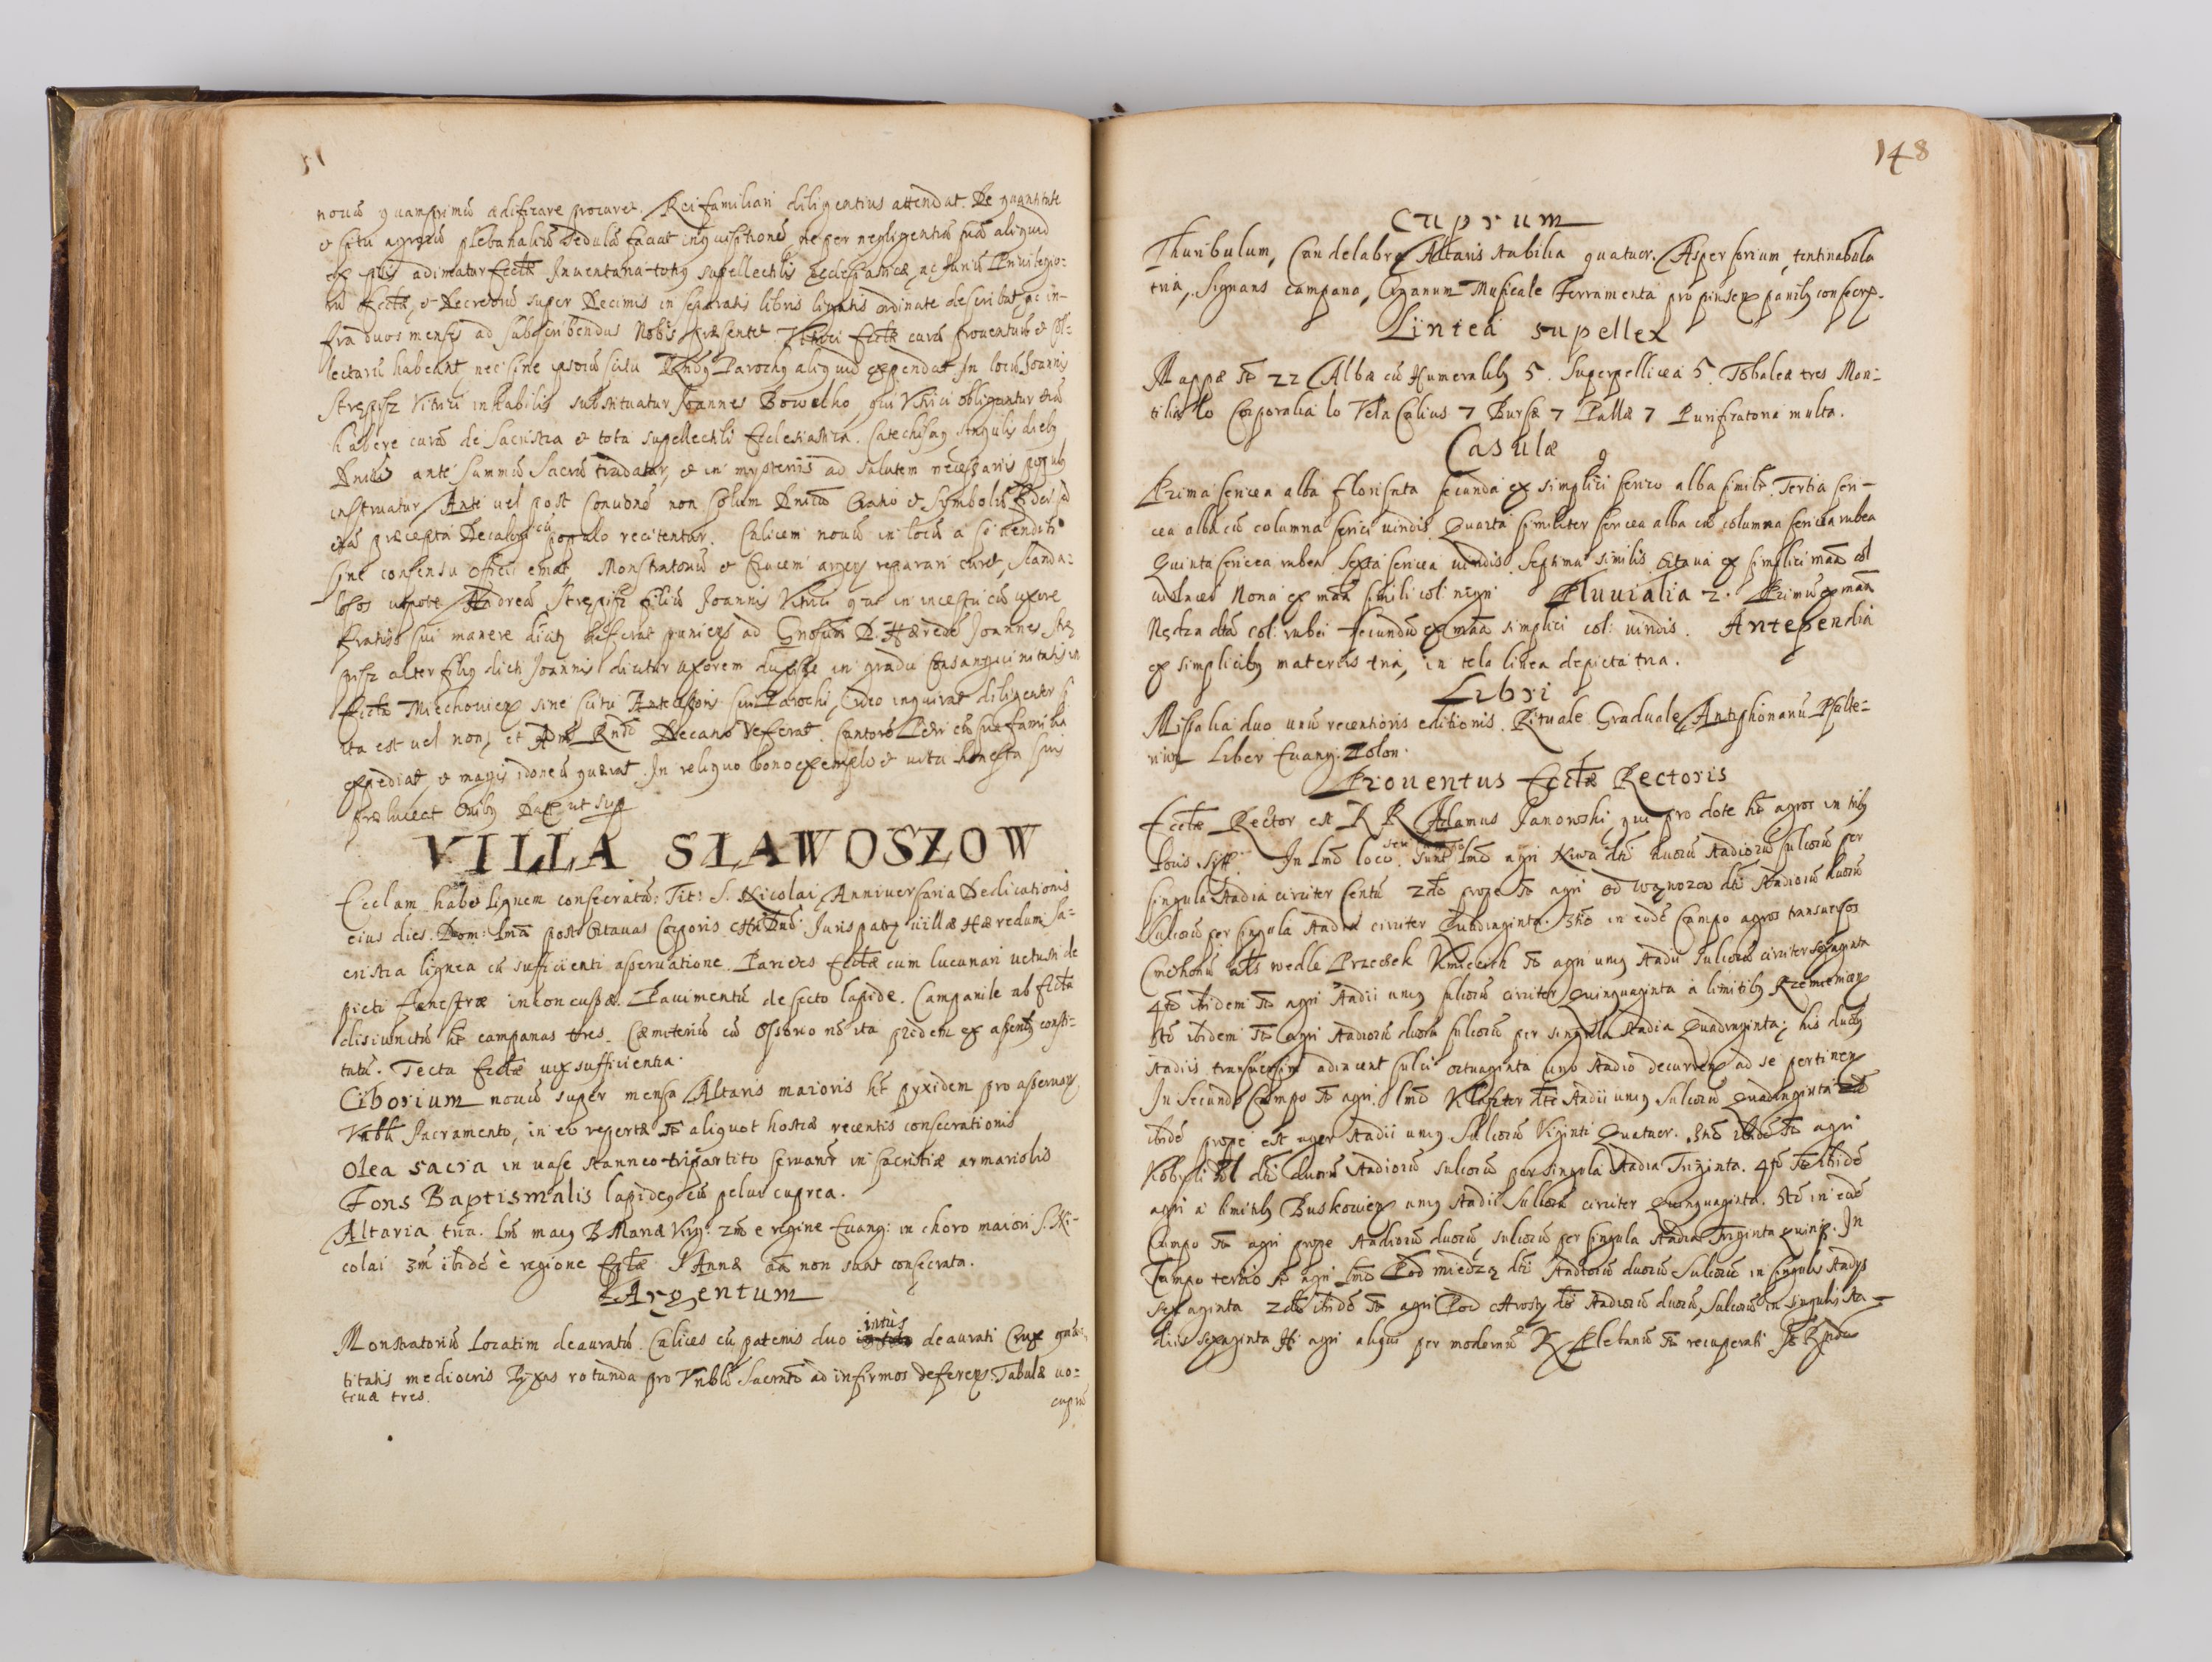 51
novũ quamprimũ ædificare procuret. Rei familiari diligentius attendat. De quantitate
et situ agrorũ plebanaliũ sedulã faciat inquisitionẽ, ne per negligentiã suã aliquid
ex ijs adimatur Eccłæ Inventaria totiq supellectilis Ecclesiasticæ, ac Jurium Privilegio-
rũ Eccłæ, et Decretorũ super Decimis in separatis libris ligatis ordinate describat, ac in-
fra duos menses ad subscribendus Nobis præsentet. Vitrici Eccłæ curã proventuũ et col-
lectarũ habeant, nec sine ipsorũ scitu Rndq Parochq aliquid expendat In locũ Joannis
Vitrici inhabilis substituatur Joannes qui Vitrici obligantur etiã
habere curã de Sacristia et tota supellectili Ecclesiastica. Catechisaq singulis dieb9
Dnicis ante summũ Sacrũ tradatur, et in mysteriis ad salutem necessariis populq
instruatur Ante vel post Concionẽ non solum Dnica Oratio et Symbolũ Fidei sed
etiã præcepta Decalogi cũ populo recitentur. Calicem novũ in locũ a se venditi
sine consensu Officii emat Monstratoriũ et Crucem argen reparari curet, Scanda-
losos utpote Andreã filiũ Joannis Vitrici qui in incestu cũ uxore
fratris sui manere dicitq deferat puniend ad Gnosum D. Hæredẽ Joannes
alter filiq dicti Joannis dicitur uxorem duxisse in gradu Consanguinitatis in
Eccła Miechovien sine scitu Antecessoris sui Parochi, ideo inquirat diligenter si
ita est vel non, et Adm Rndo Decano referat. Cantorẽ cũ sua familia
expediat, et magis idoneũ quærat. In reliquo bono exemplo et vita honesta suis
præluceat Omib9 Dat ut sup
VILLA SŁAWOSZOW
Ecclam habet ligneam consecratã: Tit: S. Nicolai, Anniversaria Dedicationis
eius dies. Dom: Ima post Octavas Corporis Chri Dni: Juris patq villæ Hæredum Sa-
cristia lignea cũ sufficienti asservatione. Parietes Eccłæ cum lucunari vetusti de
picti Fenestræ inconcussæ. Pavimentũ de secto lapide. Campanile ab Eccła
disiunctũ ht campanas tres. Cæmiteriũ cũ Ossorio nõ ita pridem ex asserib9 consti-
tutũ. Tecta Eccłæ vix sufficientia.
Ciborium novũ super mensa Altaris maioris ht pyxidem pro asservan
Vnbli Sacramento, in eo repertæ st aliquot hostiæ recentis consecrationis
Olea sacra in vase stanneo tripartito servantr in Sacristiæ armariolis
Fons Baptismalis lapideq cũ pelui cuprea.
Altaria tria. Imũ maiq B Mariæ Virg: 2m e regine Euang: in choro maiori S. Ni-
colai 3m ibidẽ è regione Eccłæ S Annæ oĩa non sunt consecrata.
Argentum
Monstratoriũ Locatim deauratũ. Calices cũ patenis duo intus deaurati Crux quan-
titatis mediocris Pyxis rotunda pro Vnblo Sacmto ad infirmos deferen Tabulæ vo-
tivæ tres.
cuprũ
148
Cuprum
Thuribulum, Candelabra Altaris stabilia quatuor. Aspersorium, tintinabula
tria, Signans campana, Organum Musicale Ferramenta pro pinsen panib9 consecr.
Lintea supellex
Mappæ st 22 Albæ cũ Humeralib9 5. Superpellicea 5. Tobalea tres Man-
tilia 10 Corporalia 10 Vela Calius 7 Bursæ 7 Pallæ 7 Purificatoria multa.
Casulæ 9
Prima sericea alba florisata secunda ex simplici serico alba similr. Tertia seri-
cea alba cũ columna serici viridis Quarta similiter sericea alba cũ columna sericea rubea
Quinta sericea rubea Sexta sericea viridis Septima similis Octava ex simplici mãa col
violacei Nona ex mãa simili col: nigri Pluvialia 2. Primũ ex mãa
Nęcza dta col: rubei secundũ ex mãa simplici col: viridis. Antependia
ex simplicib9 materiis tria, in tela linea depicta tria.
Libri
Missalia duo unũ recentioris editionis. Rituale Graduale, Antiphonariũ Psalte-
riumq Liber Euang: Polon.
Proventus Eccłæ Rectoris
Eccłæ Rector est R R Adamus Janowski, qui pro dote ht agros in trib9
locis In Imo loco, seu campo sunt Imo agri Niwa dti duorũ stadiorũ sulcorũ per
singula stadia circiter Centũ 2do prope st agri od dti stadiorũ duorũ
sulcorũ per singula stadia circiter Quadraginta. 3tio in eodẽ Campo agros transversos
als wedle Przecsek Kmiecich st agri uniq stadii Sulcorũ circiter sexaginta
4to ibidem st agri stadii uniq sulcorũ circiter Quinquaginta a limitib9
5to ibidem st agri stadiorũ duorũ sulcorũ per singula stadia Quadraginta, his duob9
stadiis transversim adiacent sulci octuaginta uno stadio decurren ad se pertinen
In Secundo Campo st agri. Imo dti stadii uniq Sulcorũ Quadraginta 2do
ibidẽ prope est ager stadii uniq Sulcorũ Viginti Quatuor. 3tio ibidẽ st agri
dti duorũ stadiorũ sulcorũ per singula stadia Triginta. 4to st ibidẽ
agri a limitib9 Buskovien uniq stadii Sulcorũ circiter Quinquaginta. 5to in eodẽ
Campo st agri prope stadiorũ duorũ, sulcorũ per singula stadia Triginta quinq. In
Campo tertio st agri Imo Pod miedzą dti stadiorũ duorũ Sulcorũ in singulis stadijs
sexaginta 2do ibidẽ st agri Pod Chrosty dti stadiorũ duorũ, Sulcorũ in singulis sta-
diis sexaginta Hi agri aliqui per modernũ R Plebanũ st recuperati